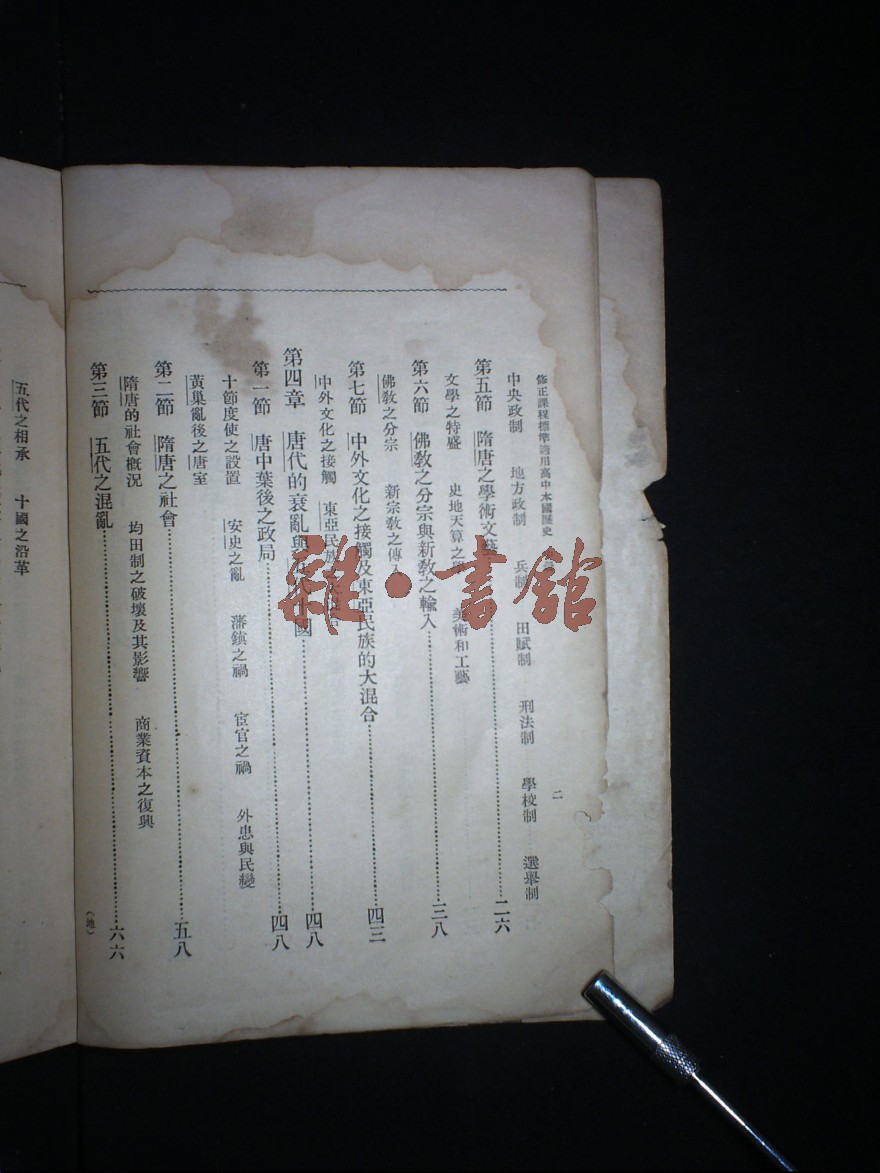 修正課程標準適用高中本國歷史 二
中央政制 地方政制 兵制 田賦制 刑法制 學校制 選舉制
第五節 隋唐之學術文藝……二六
文學之特盛 史地天算之學 美術和工藝
第六節 佛教之分宗與新教之輸入……三八
佛教之分宗 新宗教之傳入
第七節 中外文化之接觸及東亞民族的大混合……四三
中外文化之接觸 東亞民族
第四章 唐代的衰亂與 十國……四八
第一節 唐中葉後之政局……四八
十節度使之設置 安史之亂 藩鎮之禍 宦官之禍 外患與民變
黃巢亂後之唐室
第二節 隋唐之社會……五八
隋唐的社會概況 均田制之破壞及其影響 商業資本之復興
第三節 五代之混亂……六六
（地）
五代之相承 十國之沿革
雜·書館